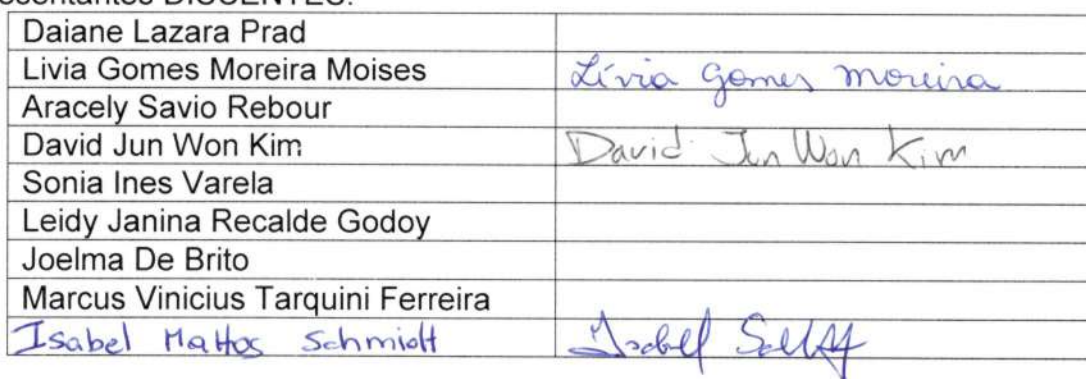 DISCENTES:
Daiane Lazara Prad
Livia Gomes Moreira Moises Lívia Gomes Moreira
Aracely Savio Rebour
David Jun Won Kim David Jun Won Kim
Sonia Ines Varela
Leidy Janina Recalde Godoy
Joelma De Brito
Marcus Vinicius Tarquini Ferreira
Isabel Mattos Schmidt Isabel